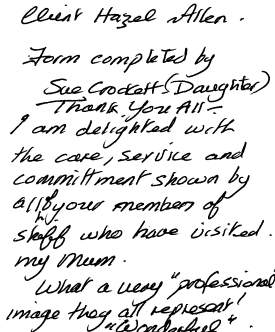 Client Hazel Allen.
Form completed by
Sue Crockett (Daughter)
Thank You All -
I am delighted with
the care, service and
committment shown by
all your members of
staff who have visited
my Mum.
What a very "professional
image they all represent!
"Wonderful".